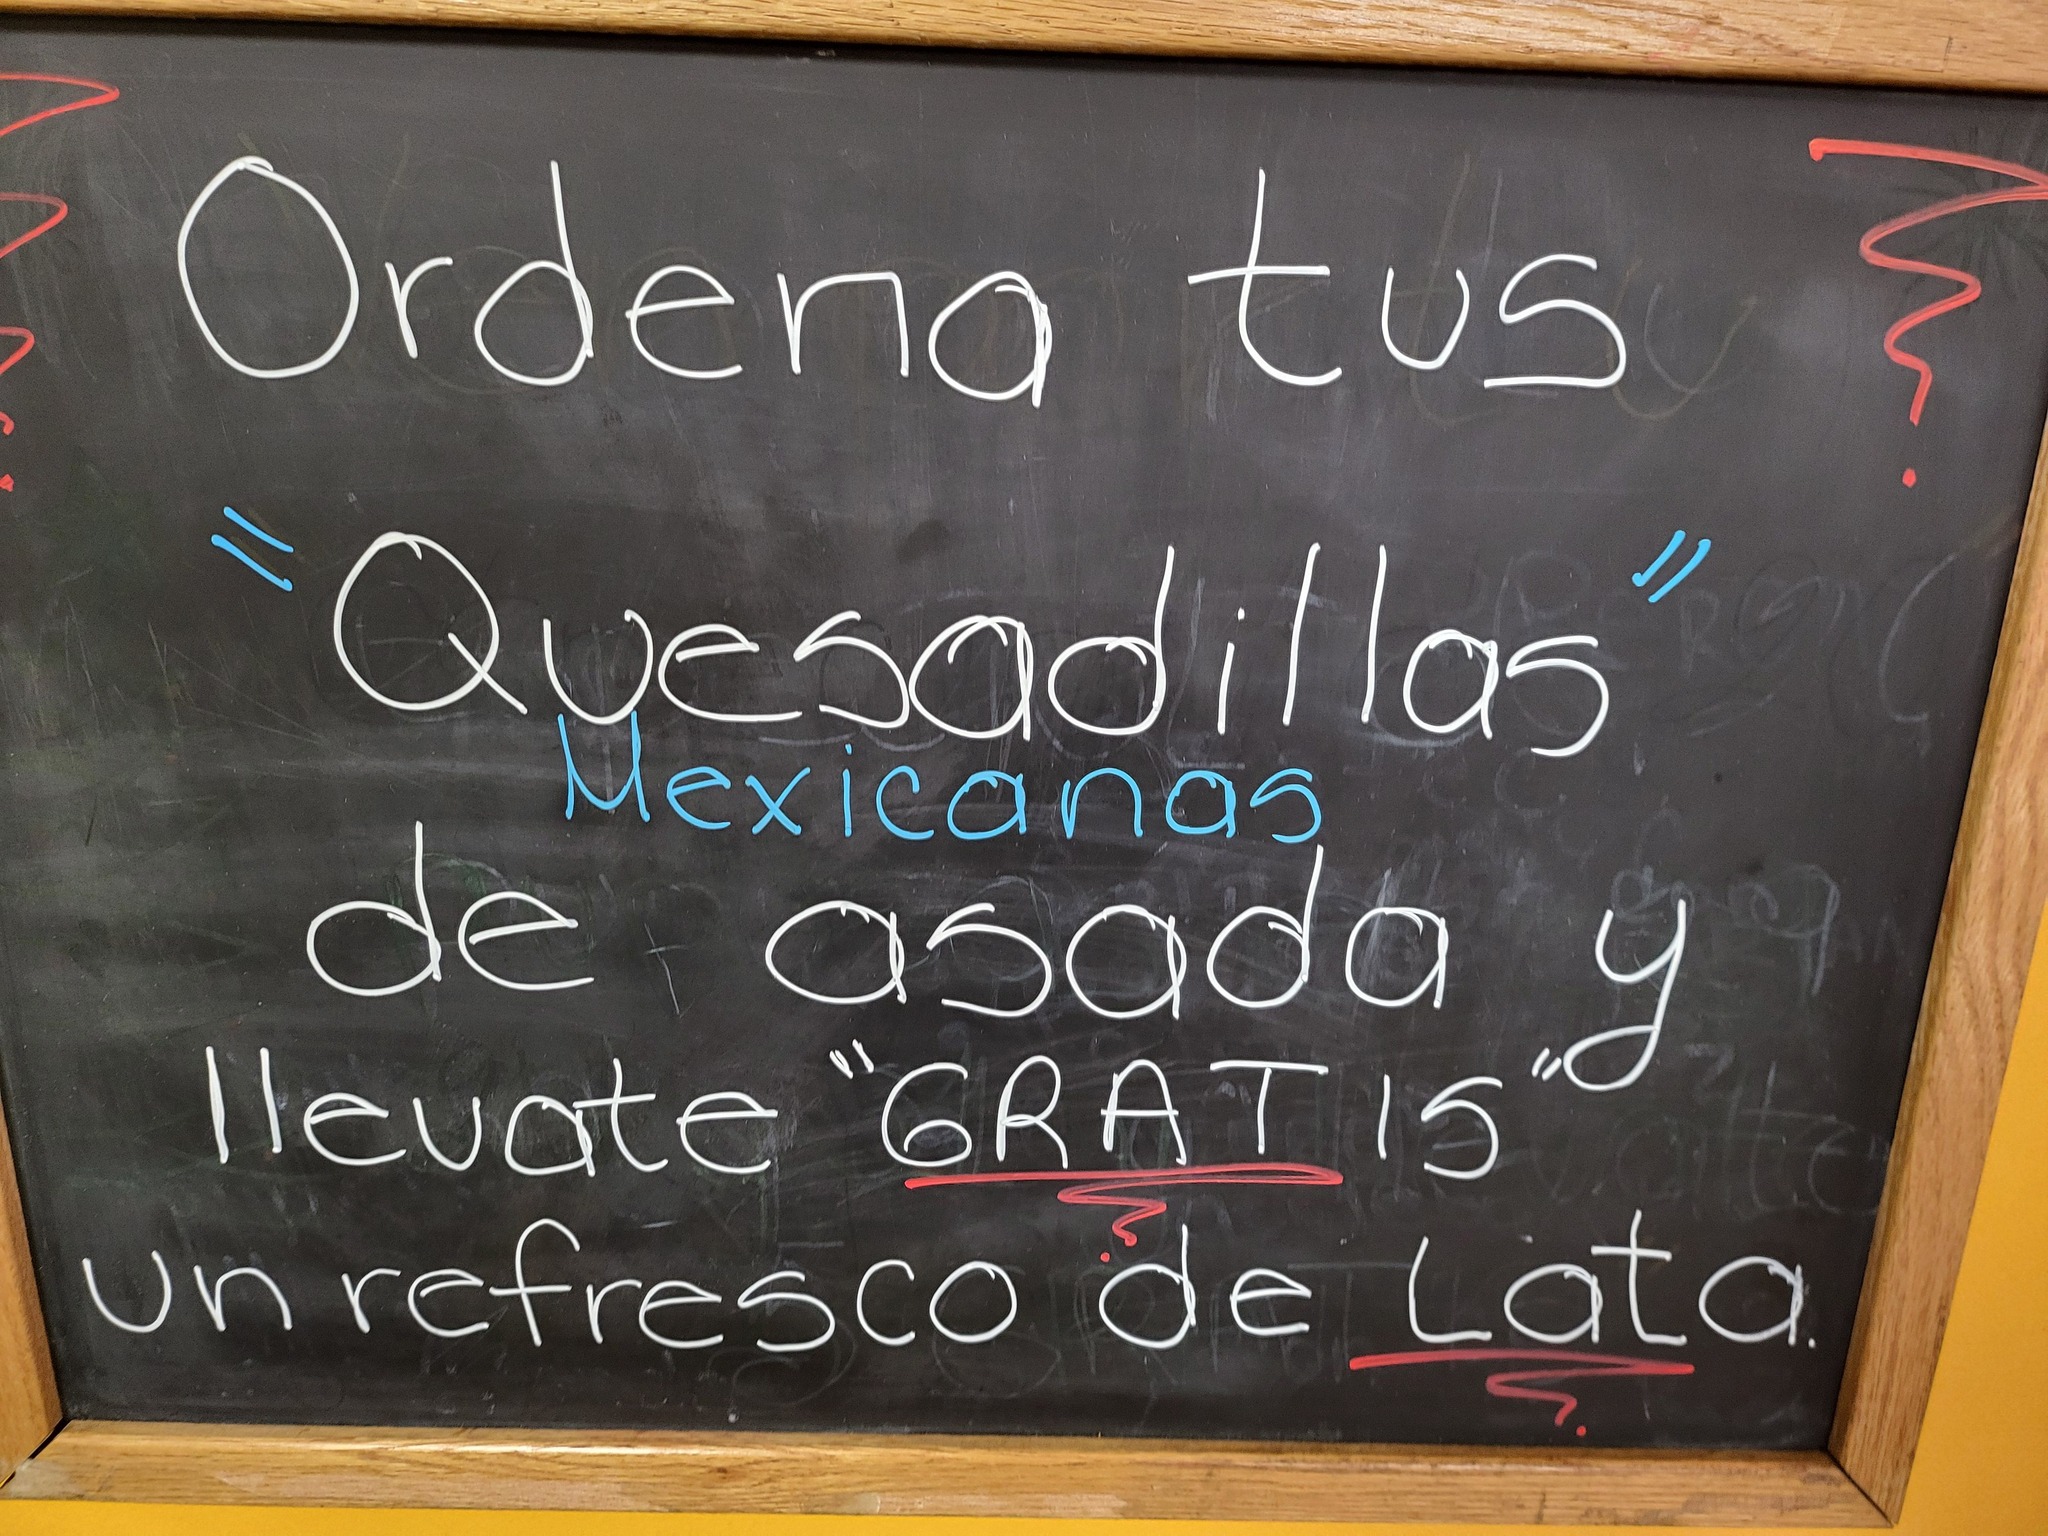 Ordena tus
"Quesadillas"
Mexicanas
de asada y
llevate "GRATIS"
un refresco de Lata.